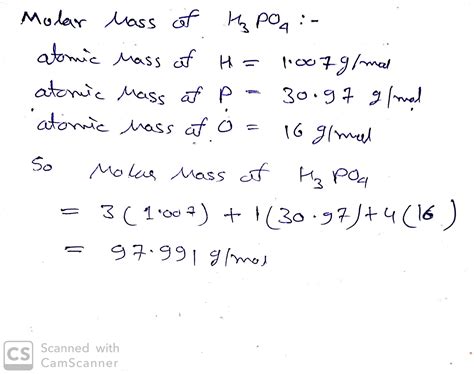 Molar Mass of H₃PO₄ :-
atomic Mass of H = 1.007 g/mol
atomic Mass of P = 30.97 g/mol
atomic Mass of O = 16 g/mol
So Molar Mass of H₃PO₄
= 3(1.007) + 1(30.97) + 4(16)
= 97.991 g/mol
CS Scanned with
CamScanner